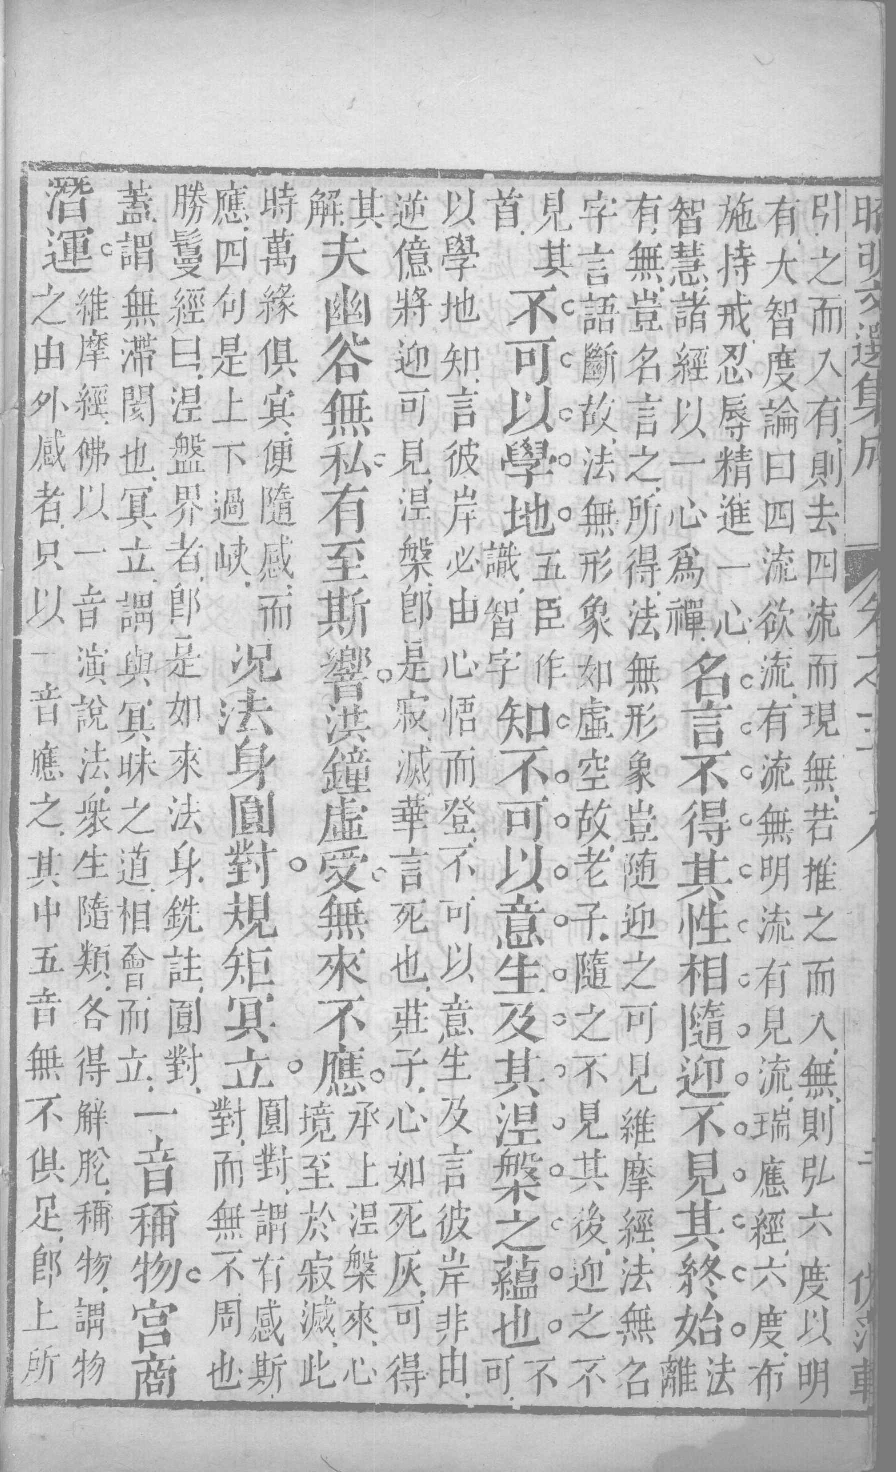 昭明文選集成
引之而入有則去四流而現無若推之而入無則弘六度以明
有大智度論曰四流欲流有流無明流有見流瑞應經六度布
施持戒忍辱精進一心智慧諸經以一心爲禪名言不得其性相隨迎不見其終始法離
有無豈名言之所得法無形象豈隨迎之可見維摩經法無名
字言語斷故法無形象如虛空故老子隨之不見其後迎之不
見其首不可以學地五臣作識智字知不可以意生及其涅槃之蘊也不可
以學地知言彼岸必由心悟而登不可以意生及言彼岸非由
逆億將迎可見涅槃卽是寂滅華言死也莊子心如死灰可得
其解夫幽谷無私有至斯響洪鐘虛受無來不應承上涅槃來心境至於寂滅此
時萬緣俱寘便隨感而應四句是上下過峽況法身圓對規矩冥立圓對謂有感斯對而無不周也
勝鬘經曰涅盤界者卽是如來法身銑註圓對蓋謂無滯閡也冥立謂與冥昧之道相會而立一音稱物宮商
潛運維摩經佛以一音演說法衆生隨類各得解脫稱物謂物之由外感者只以一音應之其中五音無不俱足卽上所